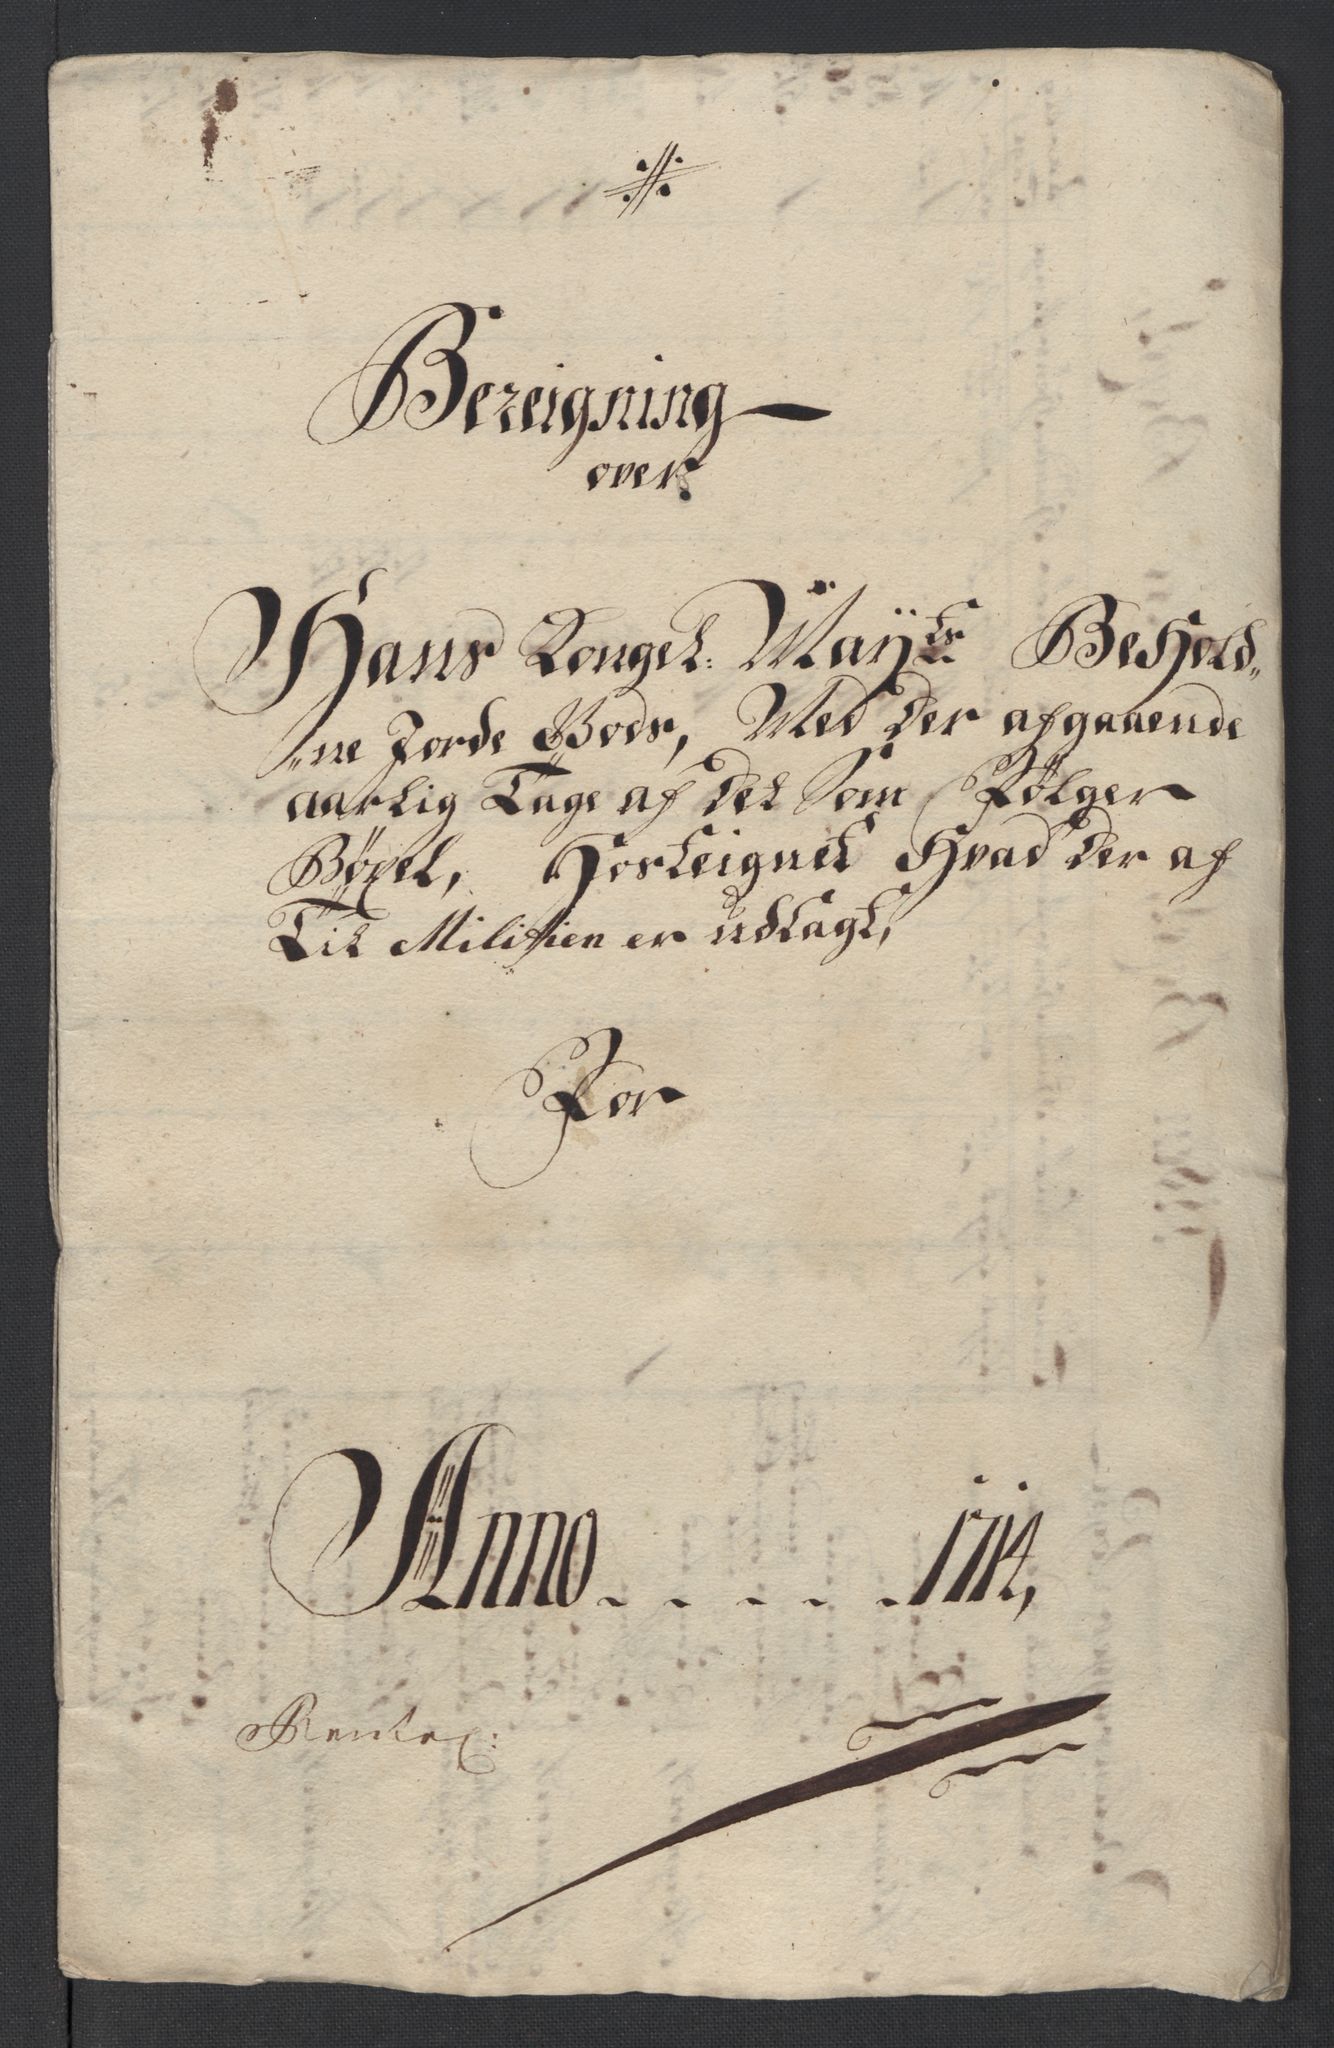 Bereigning
over
Hans Kongel: Maÿts Behold„
„ne Jorde Gods, Med der afgaaende
aarlig Tage af det Som Følger
Bÿxel, Hosteignet Hvad der af
Til Militien er udlagt,
For
Anno . . . . . 1714,
Rentec: